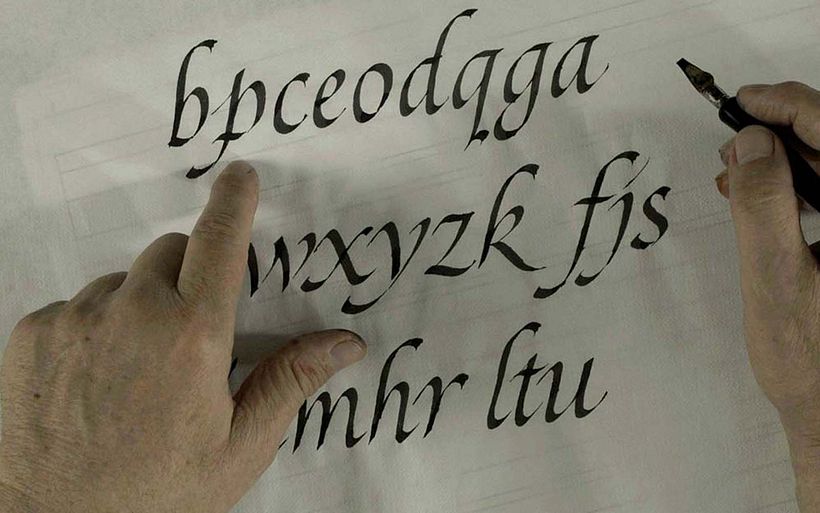 bpceodqga
wxyzk fjs
mhr ltu